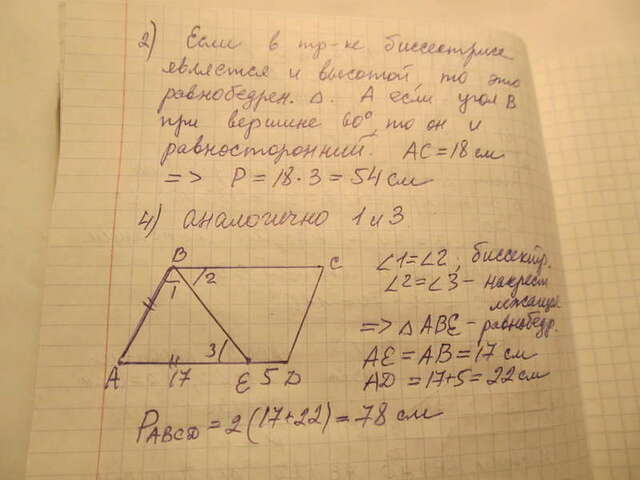 2) Если в тр-ке биссектриса
является и высотой, то это
равнобедрен. △. А если угол В
при вершине 60°, то он и
равносторонний. AC = 18 см
=> P = 18 · 3 = 54 см
4) аналогично 1 и 3.
B
C
1
2
3
A
17
E
5
D
∠1 = ∠2, биссектр.
∠2 = ∠3 - накрест
лежащие
=> △ ABE - равнобедр.
AE = AB = 17 см
AD = 17+5 = 22 см
P ABCD = 2(17+22) = 78 см